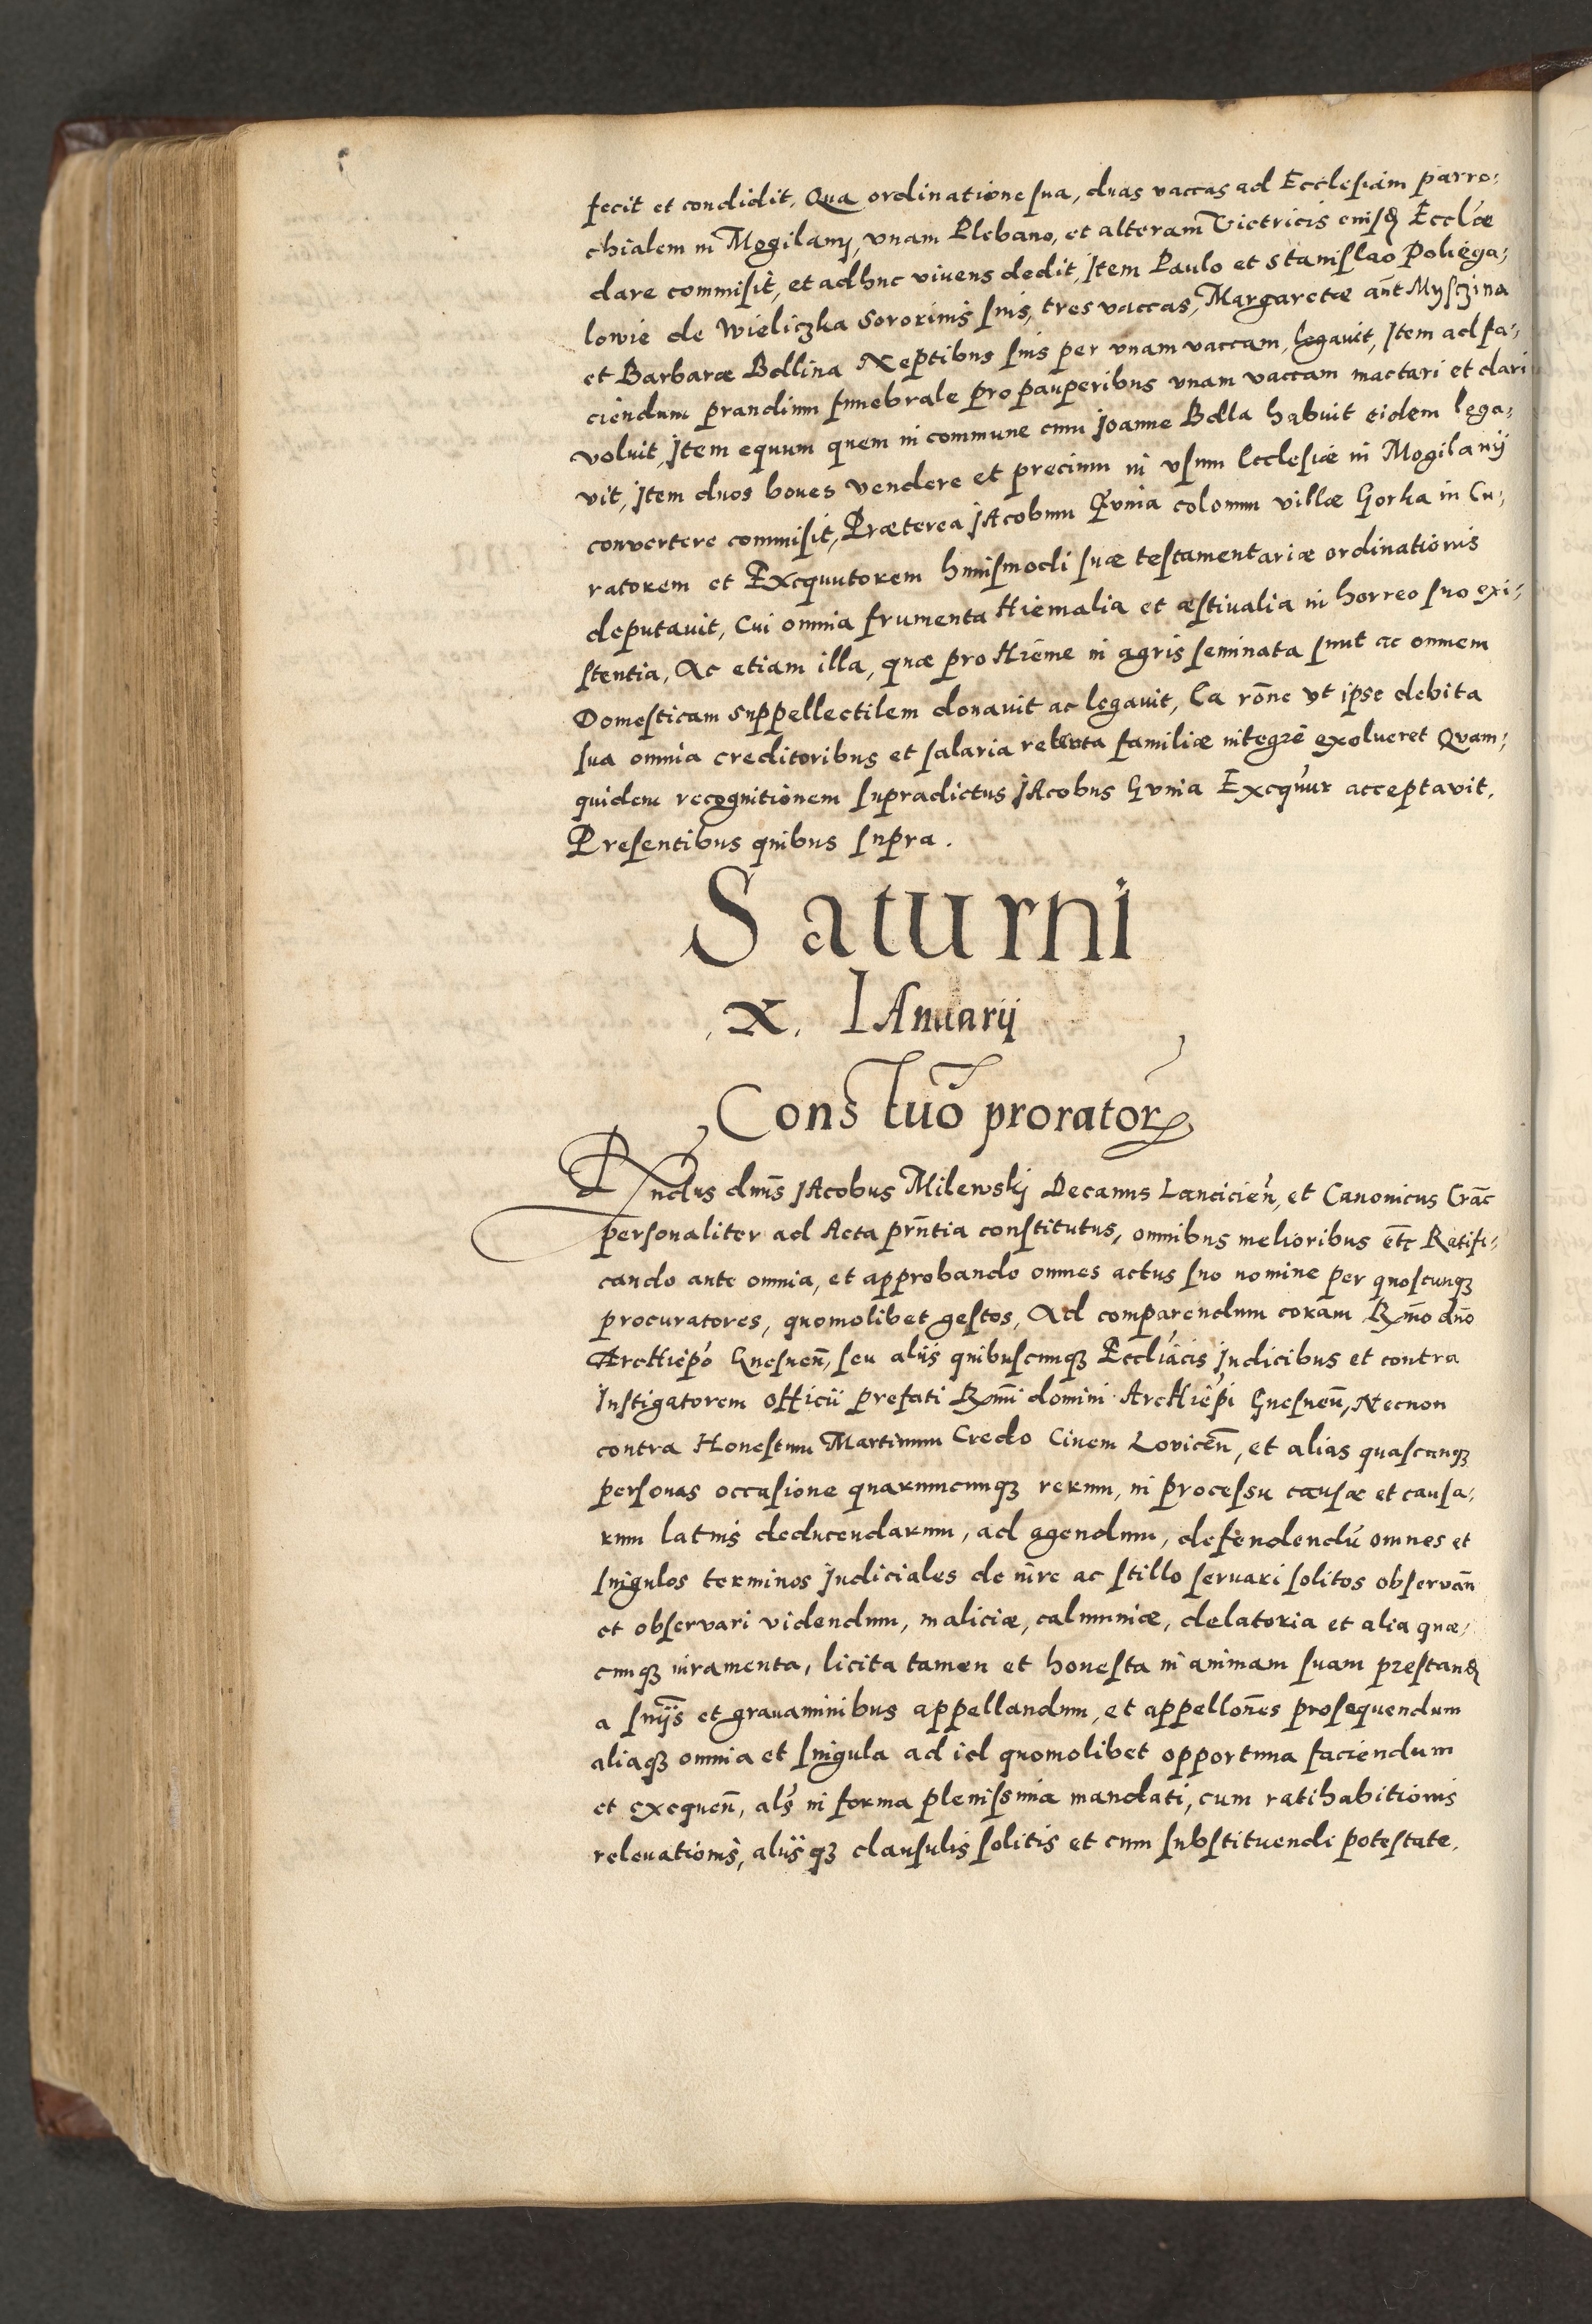 fecit et condidit, Qua ordinatione sua, duas vaccas ad Ecclesiam parro-
chialem in Mogilanÿ, vnam Plebano, et alteram Victricis eiusdꝫ Ecclīæ
dare commisit, et adhuc viuens dedit, Item Paulo et Stanislao Poliega-
lowie de Wieliczka Sororinis suis, tres vaccas, Margaretæ añt Mysczina
et Barbaræ Bdlina Neptibus suis per vnam vaccam, legauit, Item ad fa-
ciendum prandium funebrale pro pauperibus vnam vaccam mactari et dari
voluit, Item equum quem in commune cum Joanne Bdla habuit eidem lega-
vit, Item duos boues vendere et precium in vsum Ecclesiæ in Mogilanÿ
convertere commisit, Præterea JAcobum Gvnia colonum villæ Gorka in Cu-
ratorem et Exequutorem huiusmodi suæ testamentariæ ordinationis
deputauit, Cui omnia frumenta Hiemalia et æstiualia in horreo suo exi-
stentia, Ac etiam illa, quæ pro Hieme in agris seminata sunt ac omnem
Domesticam suppellectilem donauit ac legauit, Ea rōne vt ipse debita
sua omnia creditoribus et salaria retenta familiæ integrè exolueret Quam-
quidem recognitionem supradictus JAcobus Gvnia Exeqũur acceptavit.
Presentibus quibus supra.
Saturni
.X. IAnuarij
Constuō proratorꝝ
Rñdus dnūs JAcobus Milewskj Decanus Lanciciēn, et Canonicus Crāc
personaliter ad Acta prñtia constitutus, omnibus melioribus etc̄ Ratifi-
cando ante omnia, et approbando omnes actus suo nomine per quoscunqꝫ
procuratores, quomolibet gestos, Ad comparendum coram Rmō dnō
ArcHiepō Gnesneñ, seu alijs quibuscunqꝫ Eccliācis Judicibus et contra
Instigatorem officii prefati Rmī domini ArcHiepī Gnesneñ, Necnon
contra Honestum Martinum Credo Ciuem Loviceñ, et alias quascunqꝫ
personas occasione quarumcunqꝫ rerum, in processu causæ et causa-
rum latius deducendarum, ad agendum, defendendū omnes et
singulos terminos Judiciales de iure ac stillo seruari solitos obseruañ
et observari videndum, maliciæ, calumniæ, delatoria et alia quæ-
cunqꝫ iuramenta, licita tamen et honesta in animam suam prestandꝫ
a snīis et grauaminibus appellandum, et appellon̄es prosequendum
aliaqꝫ omnia et singula ad id quomolibet opportuna faciendum
et exequeñ, als̄ in forma plenissima mandati, cum ratihabitionis
releuationis, alijsqꝫ clausulis solitis et cum substituendi potestate.